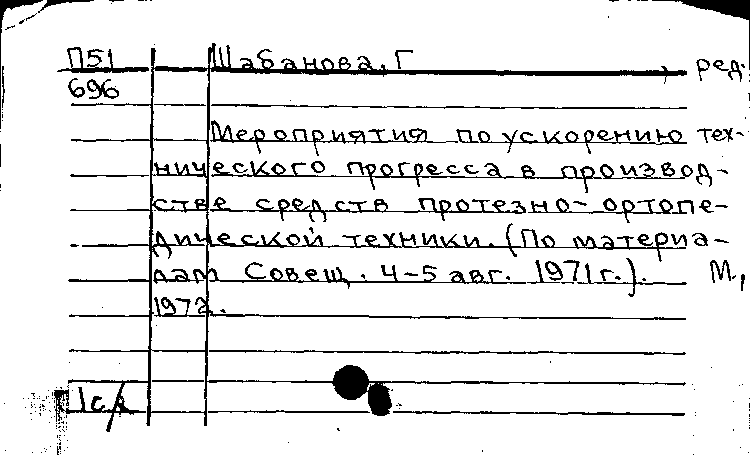 П51 Шабанова, Г , ред.
696
Мероприятия по ускорению тех-
нического прогресса в производ-
стве средств протезно-ортопе-
дической техники. (По материа-
лам Совещ. 4-5 авг. 1971 г.). М.,
1972.